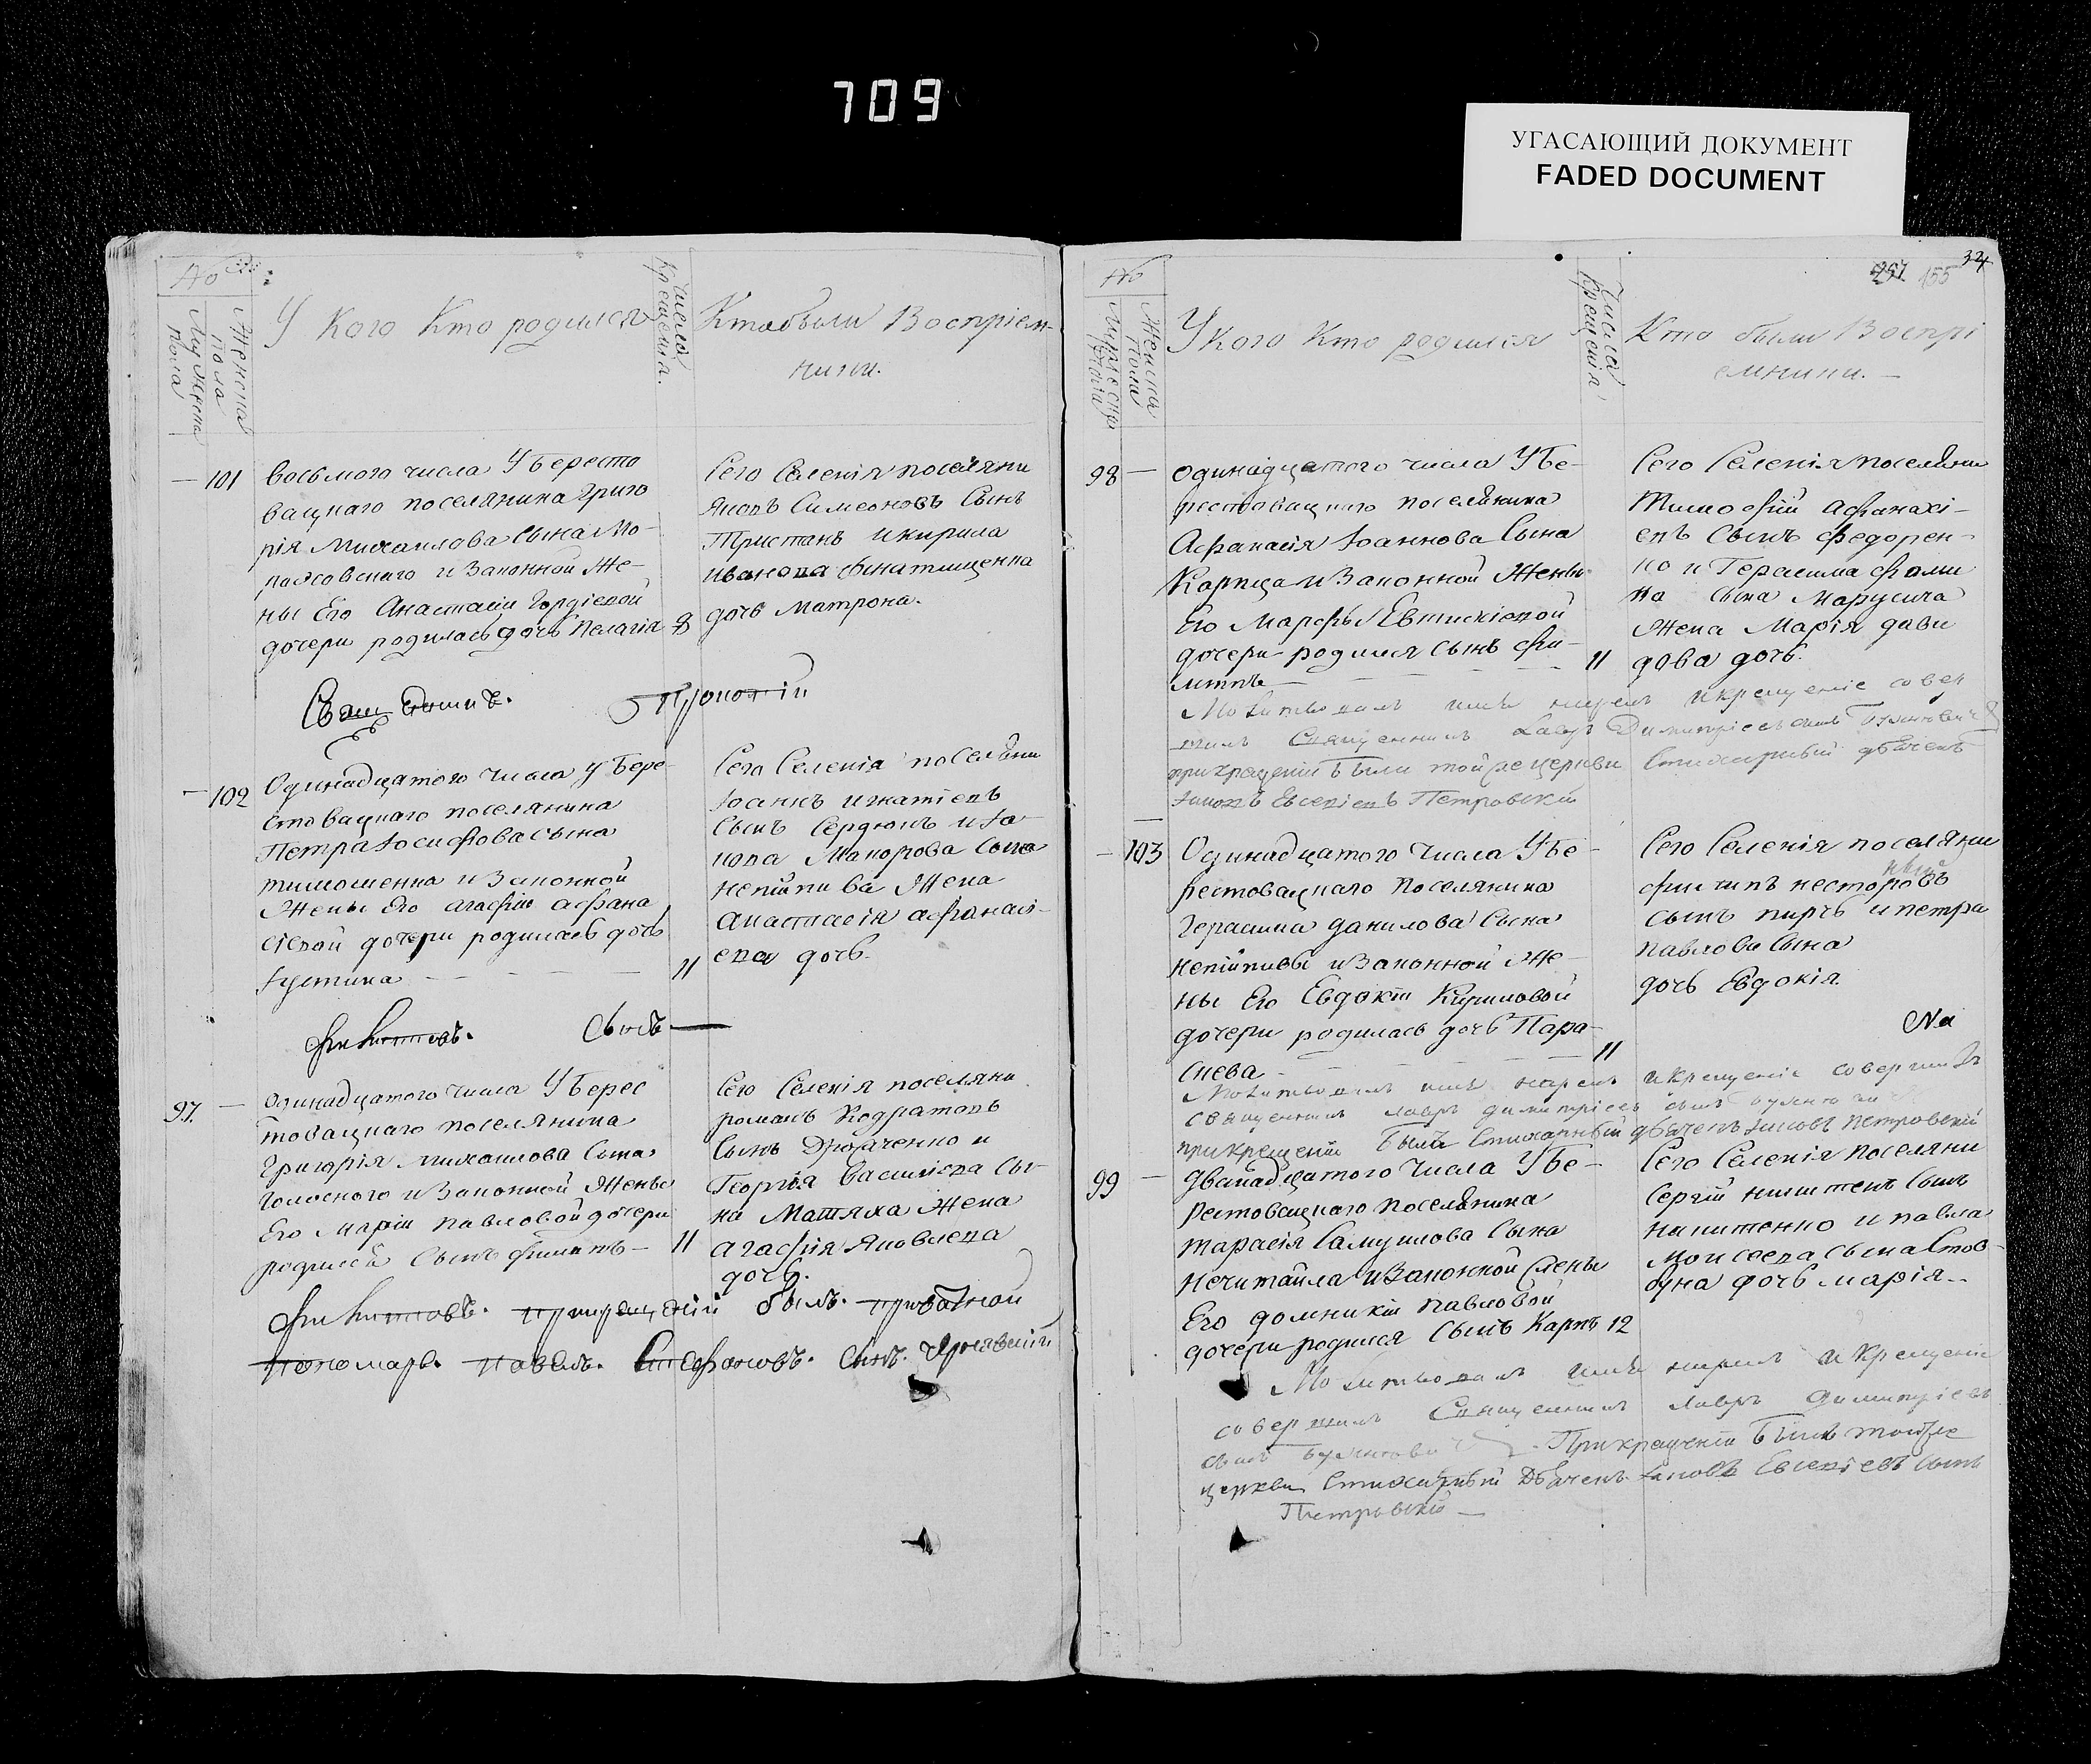 709
УГАСАЮЩИЙ ДОКУМЕНТ
FADED DOCUMENT
№
Мужеска пола
Женска пола
У Кого Кто родился
Число крещения.
Кто были Воспріем-
ники.
101
восьмого числа У Бересто
вацкаго поселянина Григо
рія Михаилова Сына Мо-
и Законной Же-
ны Его Анастасіи Гордіевой
дочери родилась дочь Пелагія
8
Сего Селенія поселяни
Яковъ Симеоновъ Сынъ
Тристанъ и Кирила
Иванова
дочь Матрона.
102
Одинадцатого числа у Бере-
стовацкаго поселянина
Петра Іосифова сына
тимошенка и Законной
Жены Его агафіи афана
сіевой дочери родилась дочь
Іустина
11
Сего Селенія поселяни
Іоаннъ игнатіевъ
Сынъ Сердюкъ и Іа
кова Макарова Сына
непійпива Жена
анастасія афанасі-
ева дочь.
Сынъ
97.
одинадцатого числа У Берес
товацкаго поселянина
Григорія Михаилова Сына
Голоснаго и Законной Жены
Его Маріи Павловой дочери
родился Сынъ Филипъ
11
Сего Селенія поселяни
романъ Кодратовъ
Сынъ Дюдченко и
Георгія василіева Сы-
на Матяха Жена
агафія Яковлева
дочь.
при крещеніи былъ
пономарь. павелъ. Стефановъ. Сынъ.
155 32
№
Мужеска пола
Женска Пола
У Кого Кто родился
Числа Крещенія
Кто были Воспрі
емники.
98
одинадцатого числа У Бе-
рестовацкаго поселянина
Афанасія Іоаннова Сына
Карпца и Законной Жены
Его Марфы Евтихіевой
дочери родился Сынъ Фи-
липъ
11
Сего Селенія поселяни
Тимофій Афанасі-
евъ Сынъ Федорен-
ко и Герасима Фоми
на Сына Марусича
Жена Марія дави
дова дочь.
Молитвовалъ имя нарекъ и крещеніе совер
шилъ Священникъ Лавръ Димитріевъ сынъ
при крещеніи Были той же церкви Стихарный дьячекъ
Іаковъ Евсевіевъ Петровскій
103
Одинадцатого Числа У Бе-
рестовацкаго Поселянина
Герасима данилова Сына
непійпивы и Законной Же-
ны Его Евдокіи Кириловой
дочери родилась дочь Пара-
скева
11
Сего Селенія поселяни
филипъ несторовъ
сынъ пирчъ и петра
павлова Сына
дочь Евдокія.
Молитвовалъ имя нарекъ и крещеніе совершилъ
священникъ лавръ димитріевъ сынъ
при крещеніи былъ Стихарный дьячекъ Іаковъ Петровскій
99
дванадцатого Числа У Бе-
рестовацкаго поселянина
тарасія Самуилова Сына
нечитайла и Законной Жены
Его домникіи павловой
дочери родился Сынъ Карпъ 12
Сего Селенія поселяни
Сергій никитенъ Сынъ
никитенко и павла
моисеева сына Стов-
буна дочь марія.
Молитвовалъ имя нарекъ и Крещеніе
совершилъ Священникъ Лавръ Димитріевъ
сынъ При крещеніи Былъ той же
церкви Стихарный Дьячекъ Іаковъ Евсевіевъ Сынъ
Петровскій